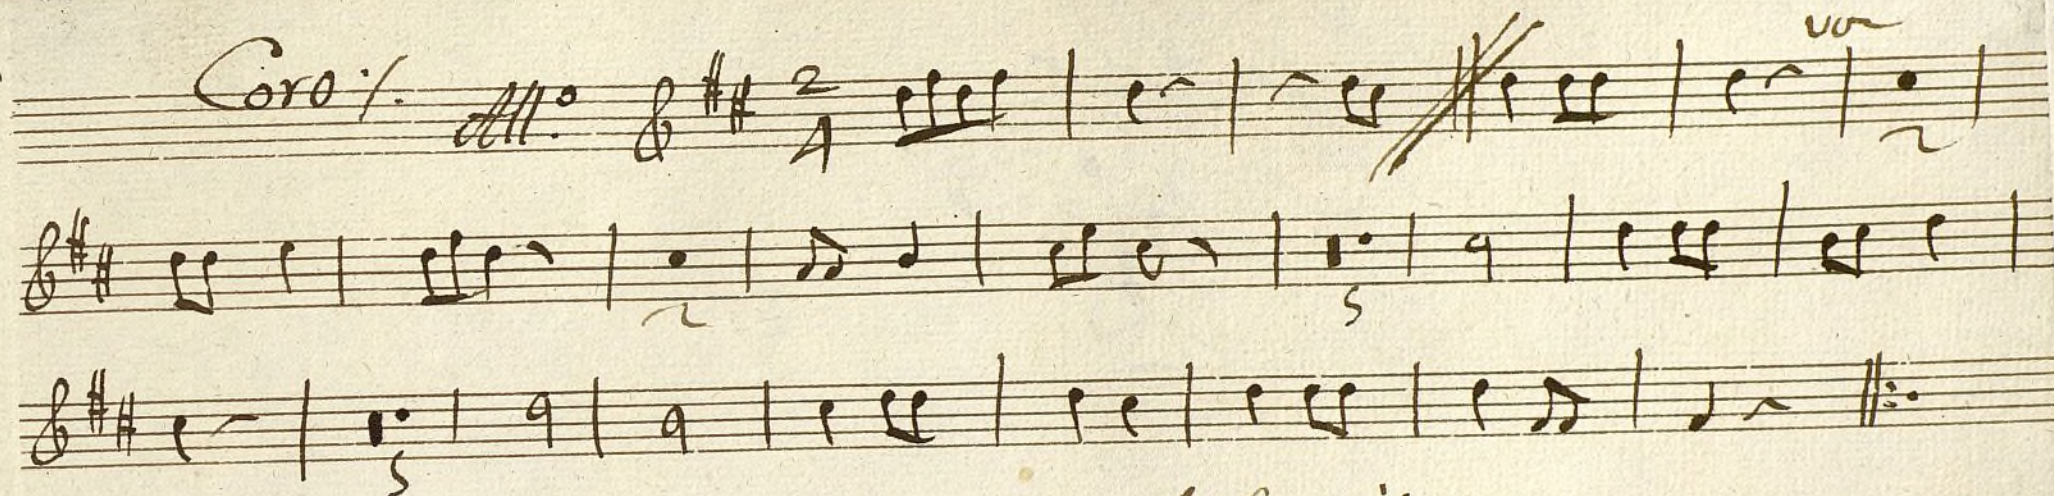 Coro ·/. All.o 2/4 vo
2
2 5
5